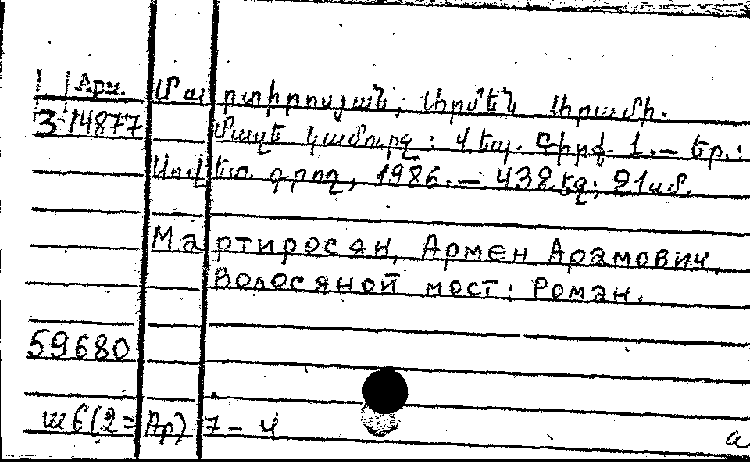 Арм. Մարտիրոսյան, Արմեն Արամի.
3-14877 Մազե կամուրջ: Վեպ. Գիրք 1. — Եր.:
Սովետ. գրող, 1986. — 438 էջ; 21 սմ.
Мартиросян, Армен Арамович.
Волосяной мост: Роман.
59680
ш6(2=Ар)7-4